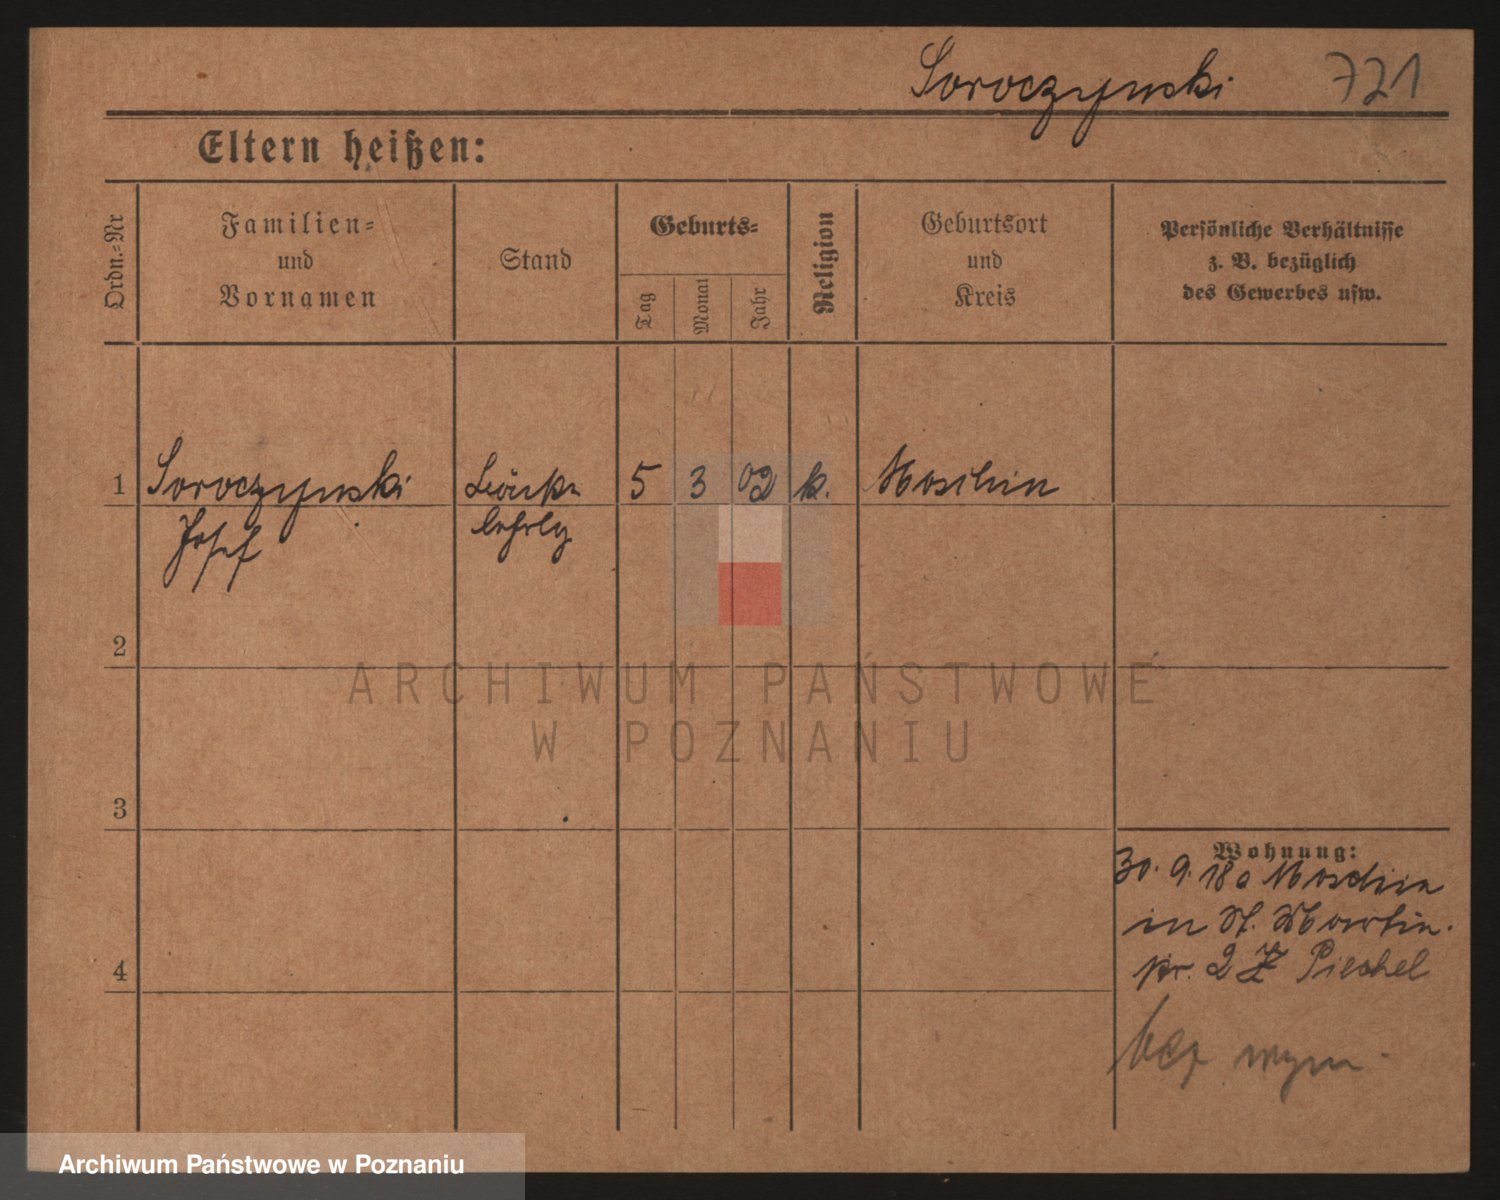 Soroczynski 721
Eltern heißen:
Ordn.=Nr
Familien=
und
Vornamen
Stand
Geburts=
Tag
Monat
Jahr
Religion
Geburtsort
und
Kreis
Persönliche Verhältnisse
z. B. bezüglich
des Gewerbes usw.
1 Soroczynski 5 3 02 k. Moschin
Josef lehrlg
2
ARCHIWUM PAŃSTWOWE
W POZNANIU
3
Wohnung:
30. 9. 18 a Moschin
in St. Martin.
pr. 2 Pieshel
4
bez wym.
Archiwum Państwowe w Poznaniu